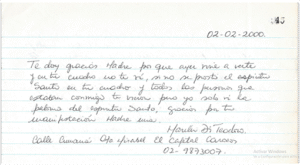 02-02-2000.
Te doy gracias Madre por que ayer vine a verte
y en tu cuadro no te vi, si no se poso el espiritu
Santo en tu cuadro y todas las personas que
estaban conmigo te vieron pero yo solo vi la
paloma del espiritu Santo, gracias por tu
Madre mia.
Calle Cumaná El Capitol Caracas
02- 9873007.